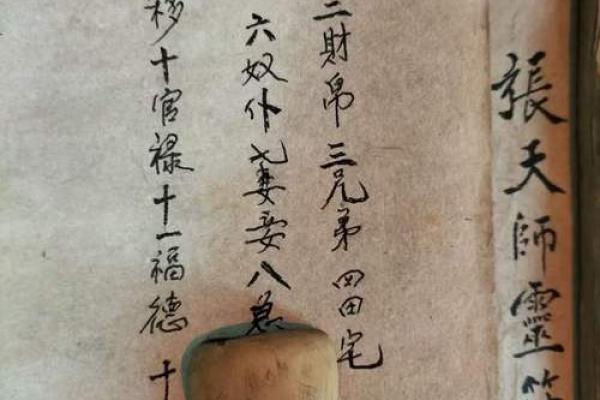 張天師靈
二財帛三兄弟四田宅
六奴仆七妻妾八
十官禄十一福德十